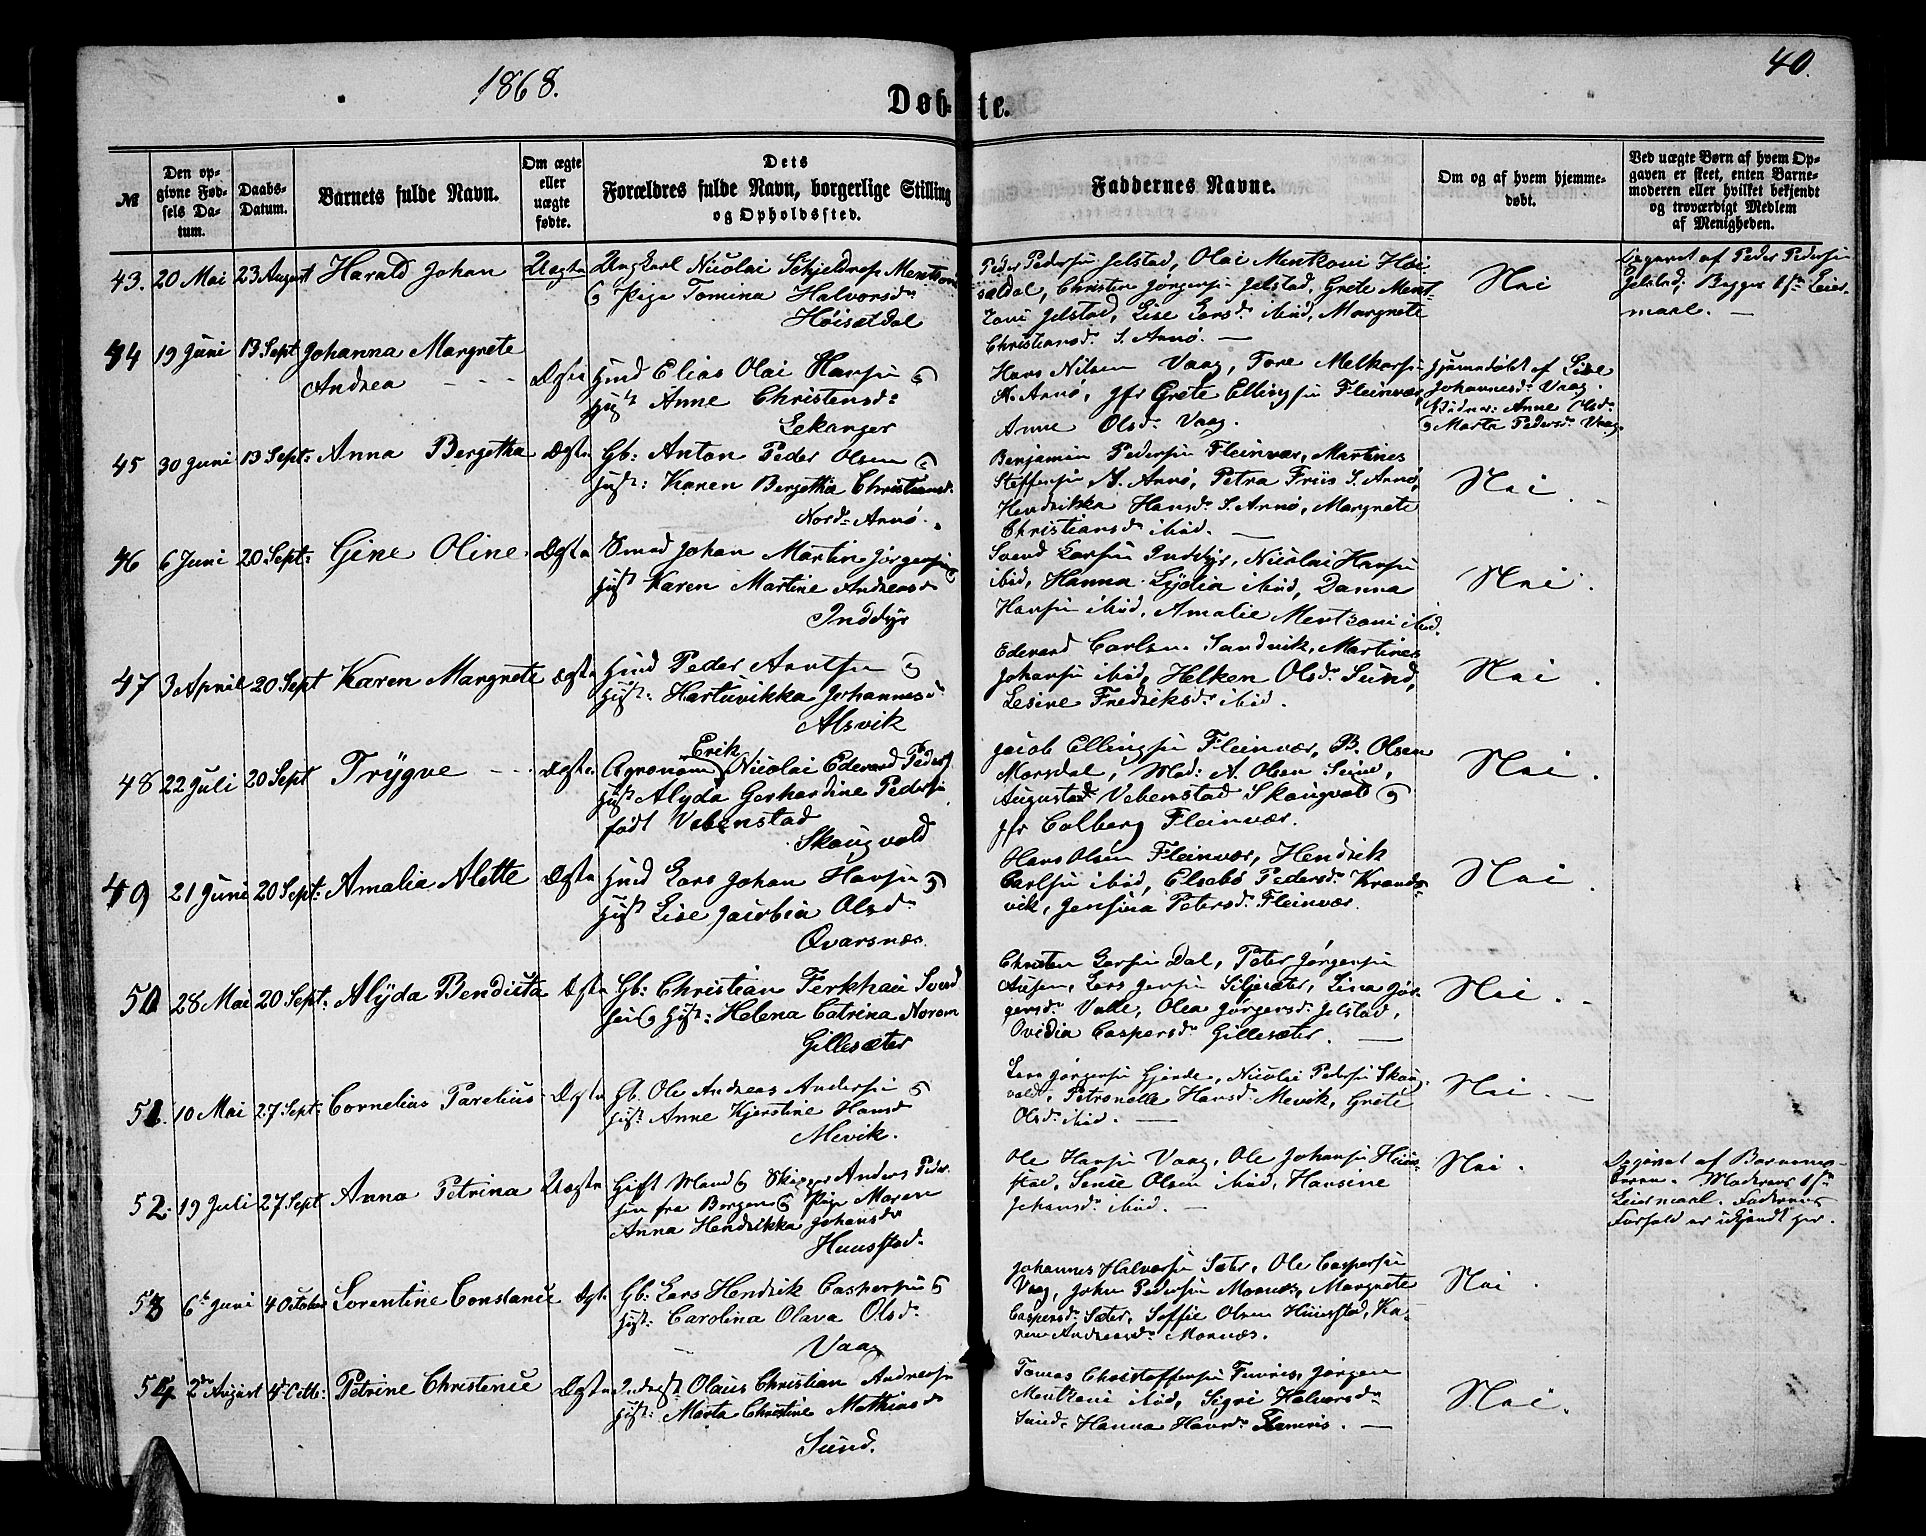 1868.
40.
Døbte.
№
Den opgivne Fødsels Datum.
Daabs-Datum.
Barnets fulde Navn.
Om ægte eller uægte fødte.
Dets
Forældres fulde Navn, borgerlige Stilling
og Opholdssted.
Faddernes Navne.
Om og af hvem hjemmedøbt.
Ved uægte Børn af hvem Opgaven er skeet, enten Barnemoderen eller hvilket bekjendt og troværdigt Medlem af Menigheden.
43. 20 Mai 23 August Harald Johan Uægte Ungkarl Nicolai Schjeldrup Mentzoni
& Pige Tomina Halvorsdr
Høisetdal
Peder Pedersen Jelstad, Olai Mentzoni Høi
setdal, Christine Jørgensen Jelstad, Grete Ment-
zoni Jelstad, Lise Larsdr ibid, Margrete
Christiansdr S. Arnø. —
Nei
Opgivet af Peder Pedersen
Jelstad; Begges 1ste Leier-
maal. —
44 19 Juni 13 Sept Johanna Margrete
Andrea Ægte Hmd Elias Olai Hansen &
Hust Anne Christensdr
Lekanger
Hans Nilsen Vaag, Tore Melkersen
N. Arnø, Jfr Grete Ellingsen Fleinvær,
Anne Olsdr Vaag.
Hjemmedøbt af Lise
Johannesdr Vaag.
Vidner: Anne Olsdr
& Marta Pedersdr Vaag.
45 30 Juni 13 Sept: Anna Bergetha Ægte Gb: Anton Peder Olsen &
Hust: Karen Bergethia Christiansdr
Nord-Arnø.
Benjamin Pedersen Fleinvær, Martines
Steffensen N. Arnø, Petra Friis S. Arnø,
Hendrikka Hansdr S. Arnø, Margrete
Christiansdr ibid. —
Nei.
46 6 Juni 20 Sept: Gine Oline. Ægte Smed Johan Martin Jørgensen &
Hust Karen Martine Andreasdr
Inddyr
Svend Larsen Inddyr, Nicolai Hansen
ibid, Hanna Lydia ibid, Danna
Hansen ibid, Amalie Mentzoni ibid.
Nei.
47 3 April 20 Sept Karen Margrete Ægte Hmd Peder Arntsen &
Hust: Hartvikka Johannesdr
Alsvik
Edevard Carlsen Sandvik, Martines
Johansen ibid, Helken Olsdr Sund,
Lesine Fredriksdr ibid.
Nei.
48 22 Juli 20 Sept Trygve Ægte Agronom Erik Nicolai Edevard Peders
Hust Alyda Gerhardine Pedersen
født Vebenstad
Skaugvold
Jacob Ellingsen Fleinvær, B. Olsen
Morsdal, Mad: A. Olsen Seine,
Augusta Vebenstad Skaugvold &
Jfr Colberg Fleinvær.
Nei.
49 21 Juni 20 Sept: Amalia Alette Ægte Hmd Lars Johan Hansen &
Hust Lise Jacobia Olsdr
Qvarsnæs
Hans Olsen Fleinvær, Hendrik
Carlsen ibid, Elsebø Pedersdr Krands-
vik, Jensina Petersdr Fleinvær.
Nei.
50 28 Mai 20 Sept: Alyda Bendicta Ægte Gb: Christian Ferkhai Svend
sen & Hust: Helena Catrina Norum
Gillesæter
Christen Larsen Dal, Peter Jørgensen
Ausen, Lars Jensen Siljesæter, Lina Jør-
gensdr Valle, Olea Jørgensdr Jelstad,
Ovidia Caspersdr Gillesæter. —
Nei.
51. 10 Mai 27 Sept: Cornelius Parelius Ægte Gb. Ole Andreas Andersen &
Hust: Anne Kjerstine Hansdr
Mevik.
Lars Jørgensen Gjerde, Nicolai Pedersen Skaug-
vold, Petronelle Hansdr Mevik, Grete
Olsdr ibid. —
Nei.
52. 19 Juli 27 Sept Anna Petrina Uægte Gift Mand & Skipper Anders Peder-
sen fra Bergen & Pige Maren
Anna Hendrikka Johansdr
Huustad.
Ole Hansen Vaag, Ole Johansen Huu-
stad, Sense Olsen ibid, Hansine
Johansdr ibid. —
Nei.
Opgivet af Barnemo-
deren. Moderens 1ste
Leiermaal. Faderens
Forhold er ukjendt her.
53 6te Juni 4 October Lorentine Constance Ægt. Gb: Lars Hendrik Caspersen &
Hust: Carolina Olava Olsdr
Vaag
Johannes Halvorsen Sæter, Ole Caspersen
Vaag, John Pedersen Mornæs, Margrete
Caspersdr Sæter, Soffie Olsen Huustad, Ka-
ren Andreasdr Mornæs.
Nei
54 2den August 4de Octb: Petrine Christence Ægte Inderst: Olaus Christian Andersen
Hust: Marta Christine Mathiasdr
Sund.
Tomas Christoffersen Funris, Jørgen
Mentzoni ibid, Sigri Halvorsdr
Sund, Hanna Hansdr Femris. —
Nei.